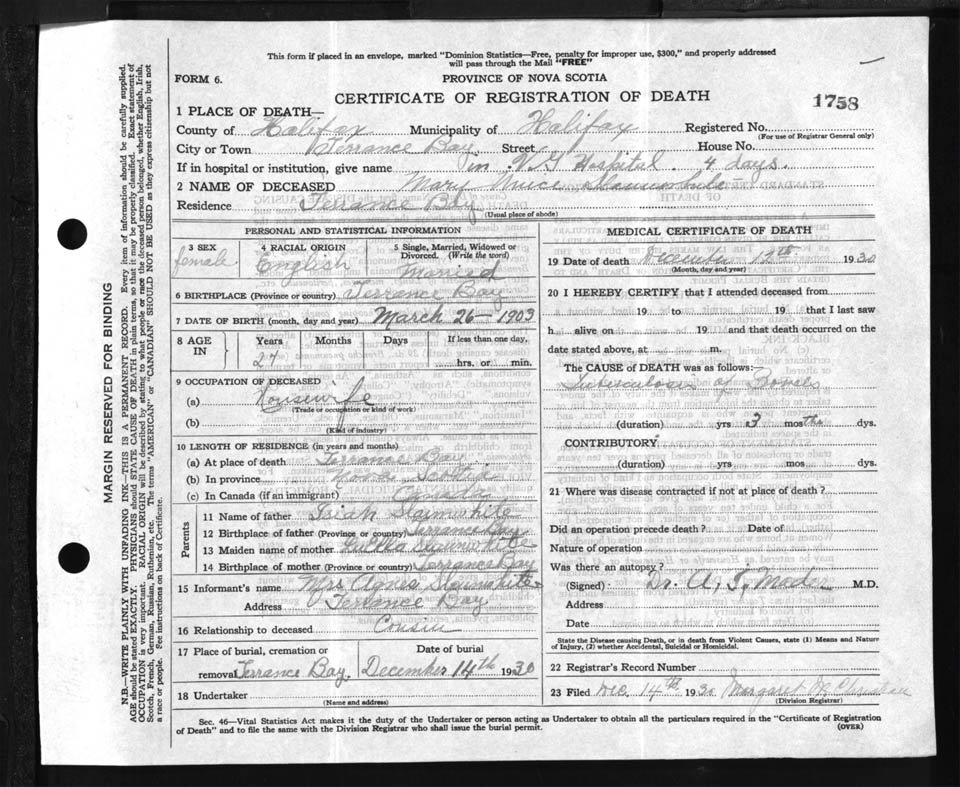 This form if placed in an envelope, marked "Dominion Statistics—Free, penalty for improper use, $300," and properly addressed
will pass through the Mail "FREE"
FORM 6.
PROVINCE OF NOVA SCOTIA
CERTIFICATE OF REGISTRATION OF DEATH
1758
1 PLACE OF DEATH—
County of Halifax Municipality of Halifax Registered No.
(For use of Registrar General only)
City or Town Terrance Bay Street House No.
If in hospital or institution, give name in V.G Hospital. 4 days.
2 NAME OF DECEASED Mary
Residence Terrance Bay
(Usual place of abode)
PERSONAL AND STATISTICAL INFORMATION
3 SEX 4 RACIAL ORIGIN 5 Single, Married, Widowed or
Divorced. (Write the word)
female. English Married
6 BIRTHPLACE (Province or country) Terrance Bay
7 DATE OF BIRTH (month, day and year) March 26— 1903
8 AGE IN Years Months Days If less than one day,
27 hrs. or min.
9 OCCUPATION OF DECEASED
(a) Housewife
(Trade or occupation or kind of work)
(b)
(Kind of industry)
10 LENGTH OF RESIDENCE (in years and months)
(a) At place of death Terrance Bay
(b) In province Nova Scotia
(c) In Canada (if an immigrant) Canada
Parents
11 Name of father Isiah Slaunwhite
12 Birthplace of father (Province or country) Terrance Bay
13 Maiden name of mother Slaunwhite
14 Birthplace of mother (Province or country) Terrance Bay
15 Informant's name Mrs Agnes Slaunwhite
Address Terrance Bay
16 Relationship to deceased Cousin
17 Place of burial, cremation or Date of burial
removal Terrance Bay. December 14th 1930
18 Undertaker
(Name and address)
MEDICAL CERTIFICATE OF DEATH
19 Date of death December 12th 1930
(Month, day and year)
20 I HEREBY CERTIFY that I attended deceased from
19 to 19 that I last saw
h alive on 19 and that death occurred on the
date stated above, at m.
The CAUSE of DEATH was as follows:
Tuberculosis of Bowels
(duration) yrs 3 mosths dys.
CONTRIBUTORY
(duration) yrs mos dys.
21 Where was disease contracted if not at place of death?
Did an operation precede death? Date of
Nature of operation
Was there an autopsy?
(Signed) Dr. A, I, Mader M.D.
Address
Date
State the Disease causing Death, or in death from Violent Causes, state (1) Means and Nature
of Injury, (2) whether Accidental, Suicidal or Homicidal.
22 Registrar's Record Number
23 Filed Dec. 14th 1930 Margaret M.
(Division Registrar)
Sec. 46—Vital Statistics Act makes it the duty of the Undertaker or person acting as Undertaker to obtain all the particulars required in the "Certificate of Registration
of Death" and to file the same with the Division Registrar who shall issue the burial permit.
(OVER)
MARGIN RESERVED FOR BINDING
N.B.—WRITE PLAINLY WITH UNFADING INK—THIS IS A PERMANENT RECORD. Every item of information should be carefully supplied.
AGE should be stated EXACTLY. PHYSICIANS should STATE CAUSE OF DEATH in plain terms, so that it may be properly classified. Exact statement of
OCCUPATION is very important. RACIAL ORIGIN will be described by stating to what people or race the deceased person belonged, whether English, Irish,
Scotch, French, German, Russian, Ruthenian, etc. The terms "AMERICAN" or "CANADIAN" SHOULD NOT BE USED as they express citizenship but not
a race or people. See instructions on back of Certificate.